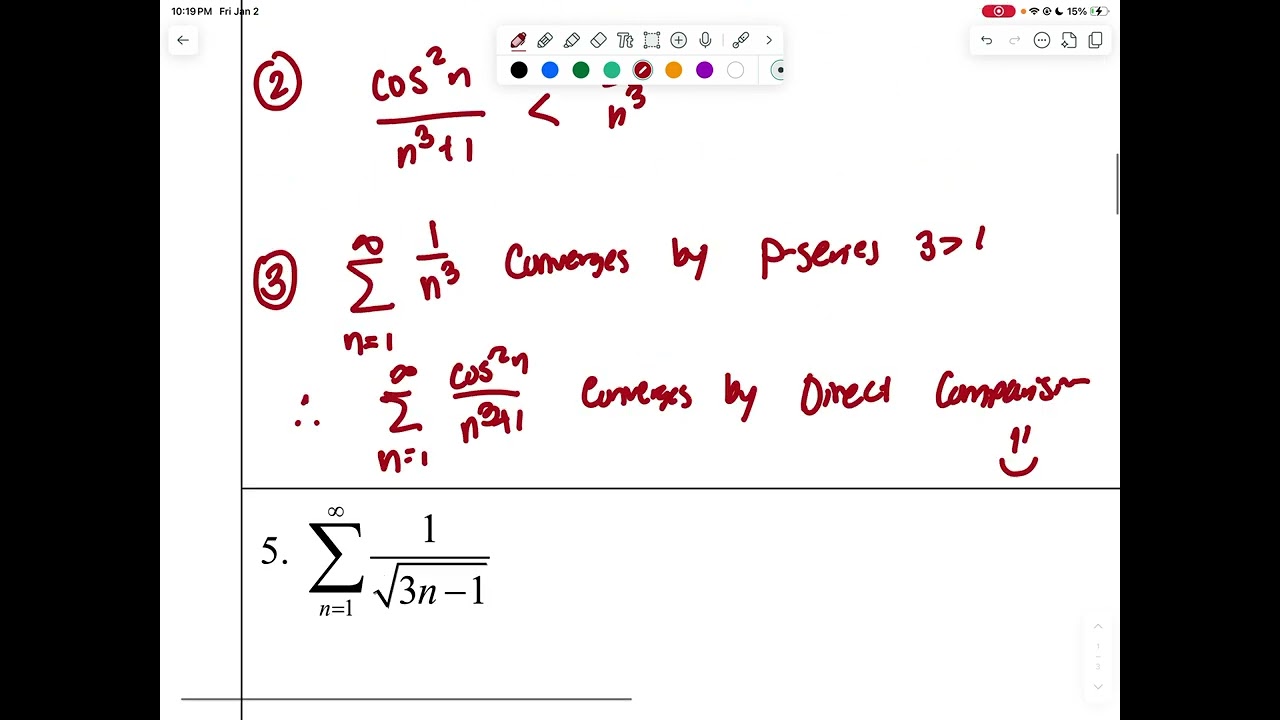 10:19 PM Fri Jan 2
15%
② cos²n / n³+1 < / n³
③ ∞ Σ n=1 1/n³ Converges by p-series 3>1
∴ ∞ Σ n=1 cos²n / n³+1 Converges by Direct Comparison
5. ∞ Σ n=1 1/√(3n−1)
1
3